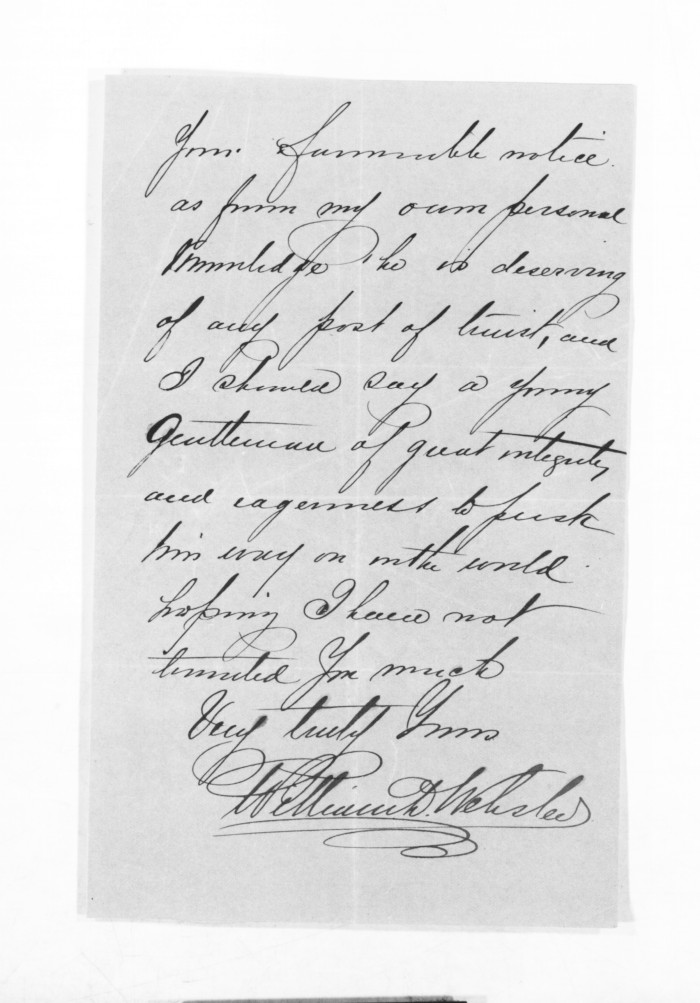 Your favourable notice.
as from my own personal
knowledge he is deserving
of any post of trust, and
I should say a young
Gentleman of great integrity
and eagerness to push
his way on in the world
hoping I have not
trouted You much
Very truly Yours
William D. Webster